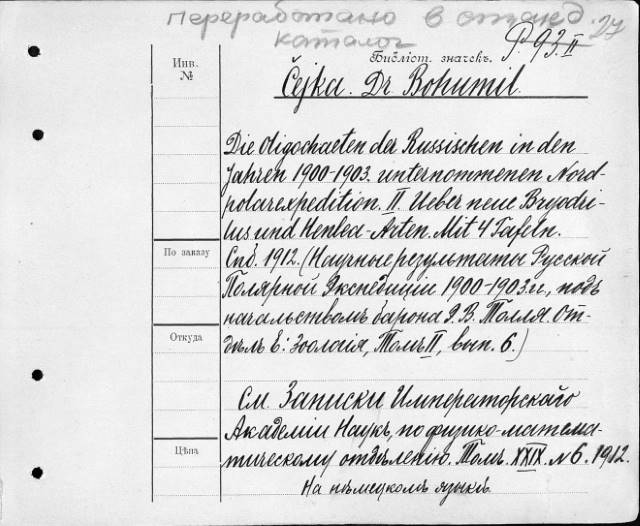 переработано в станд. 27
каталог
Библіот. значекъ. P. 93. II
Инв.
№
Čejka. Dr. Bohumil.
Die Oligochaeten der Russischen in den
Jahren 1900-1903. unternommenen Nord-
polarexpedition. II. Ueber neue Bryodri-
lus und Henlea-Arten. Mit 4 Tafeln.
По заказу
Спб. 1912. (Научные результаты Русской
Полярной Экспедиціи 1900-1903 гг., подъ
начальствомъ барона Э. В. Толля. От-
Откуда
дѣлъ E: Зоологія, Томъ II, вып. 6.)
См. Записки Императорскаго
Академіи Наукъ, по физико-матема-
Цѣна
тическому отдѣленію. Томъ. XXIX. № 6. 1912.
На нѣмецкомъ языкѣ.